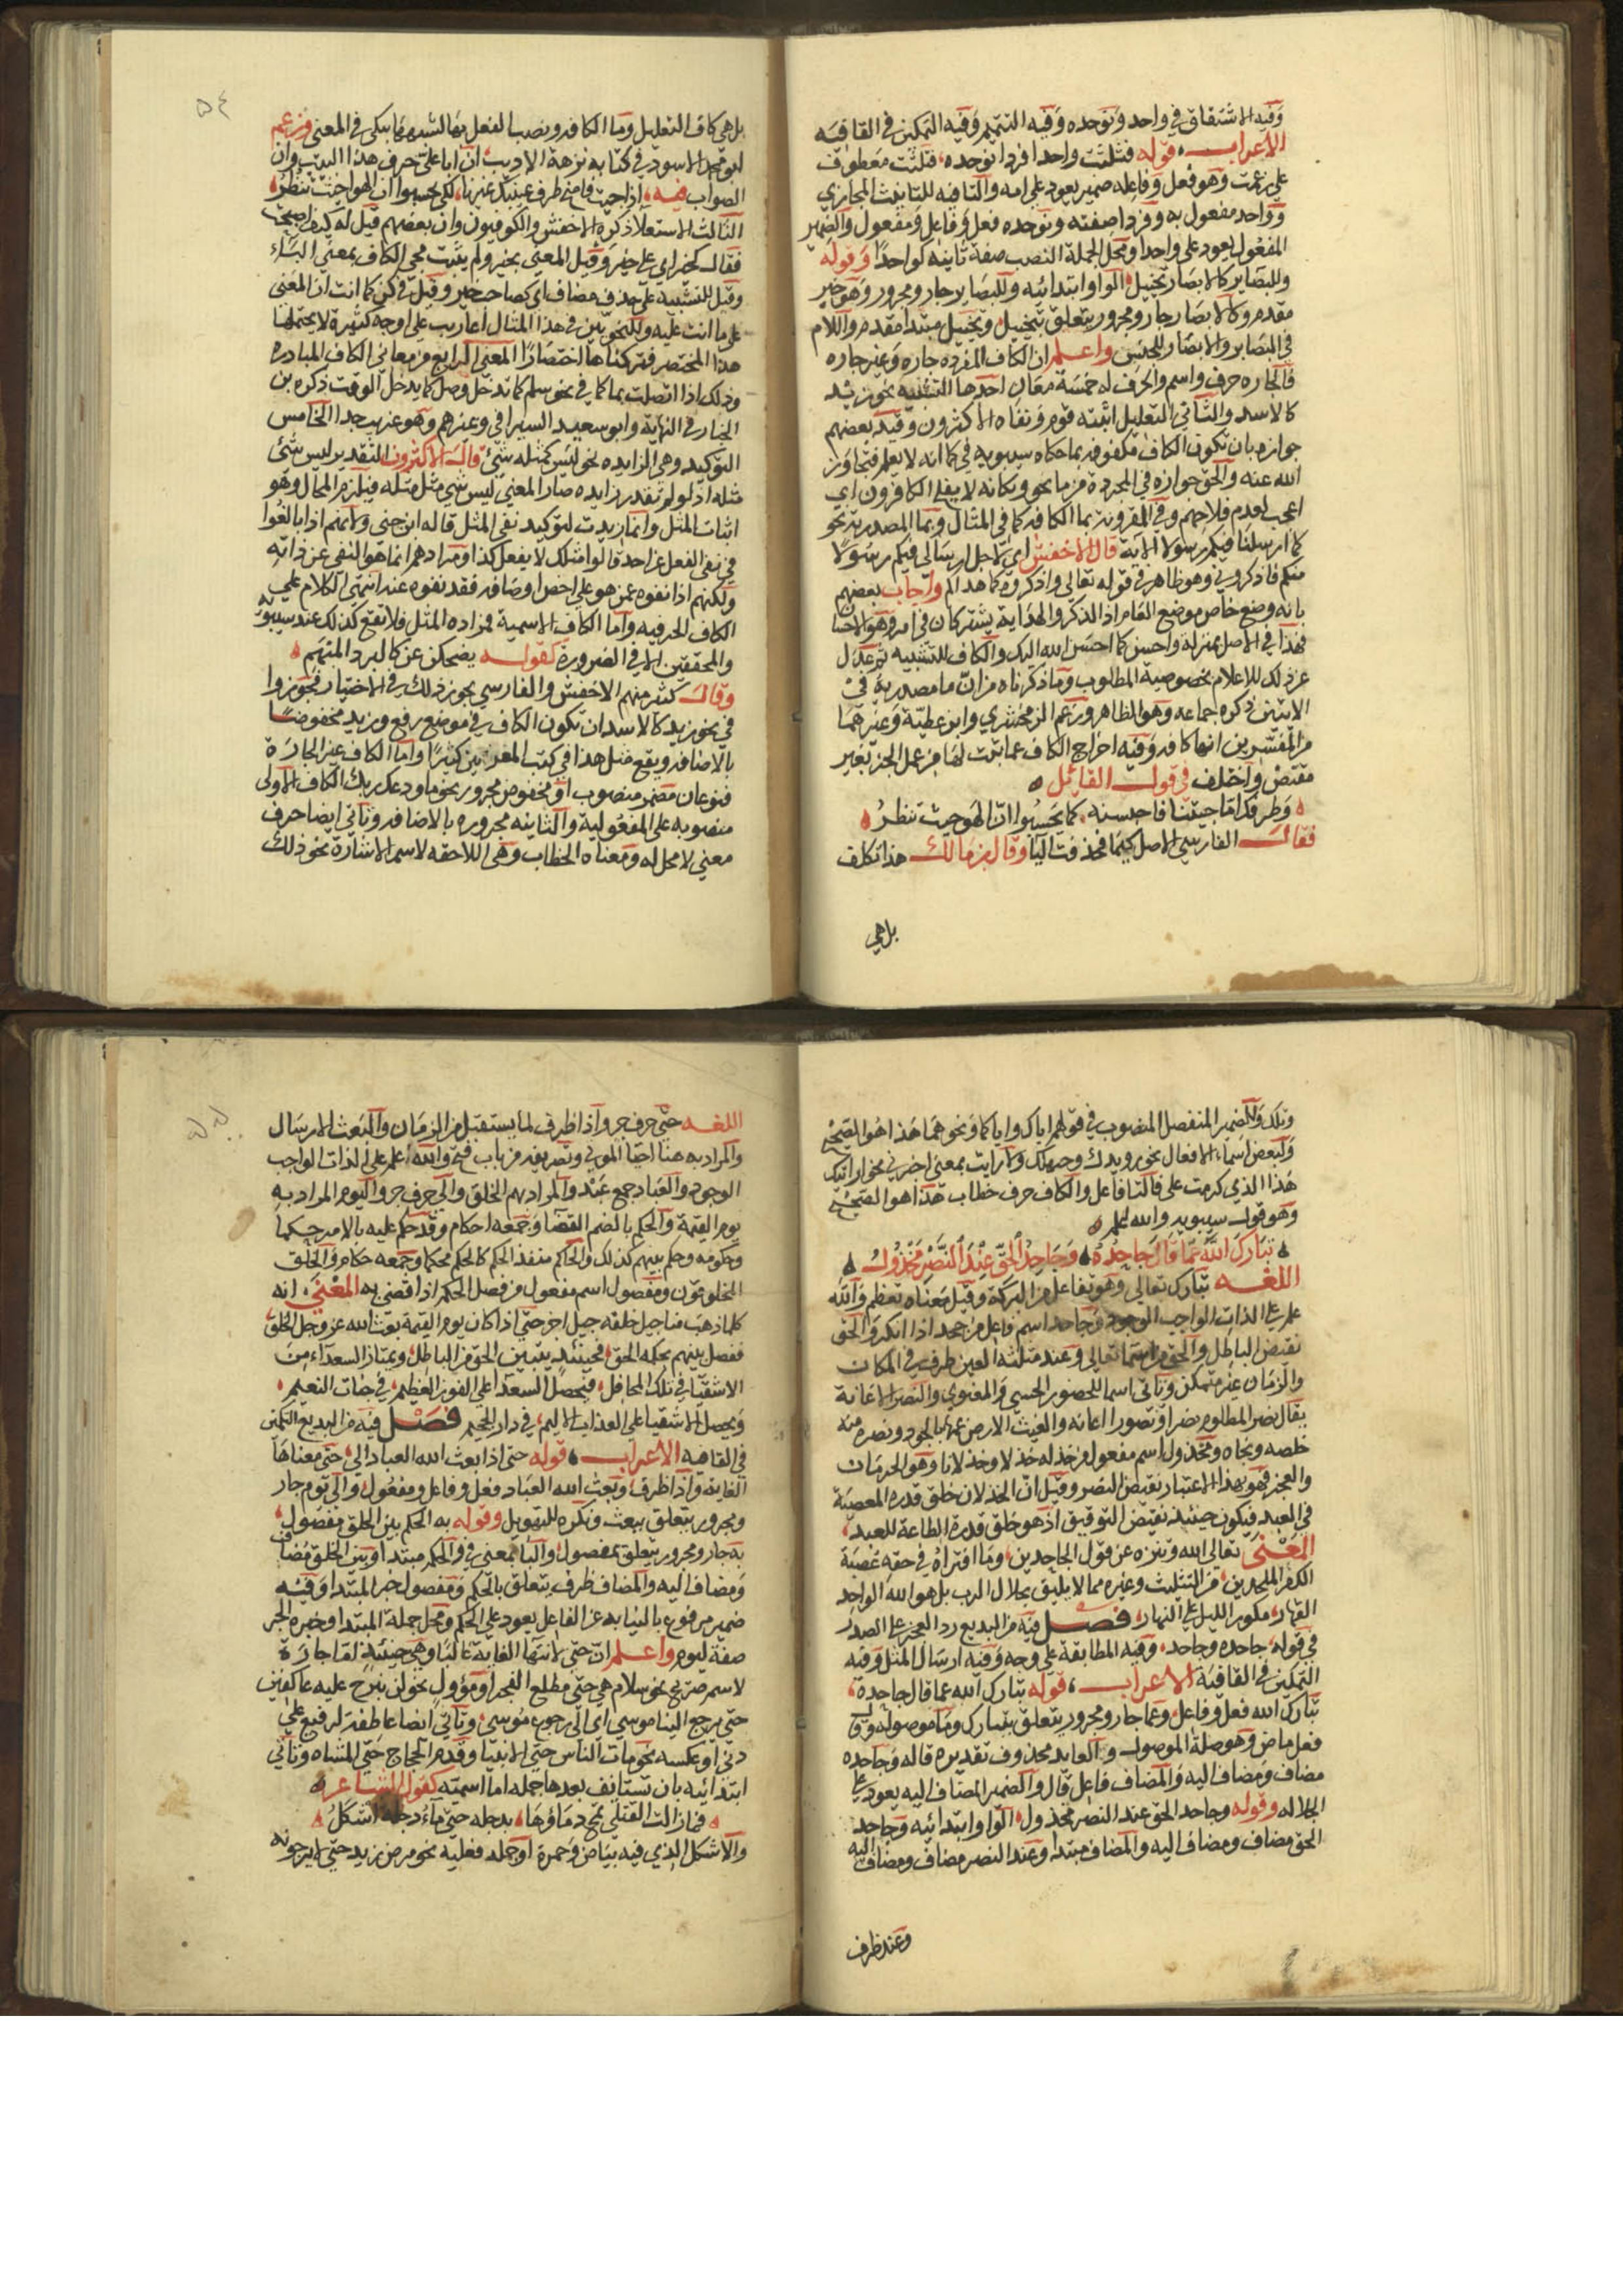 وفيه الاشتقاق في واحد وتوحده وفيه التتميم وفيه التمكين في القافيه
الاعراب قوله فثلثت واحدا فردا توحده فثلثت معطوف
على زعمت وهو فعل وفاعله ضمير يعود على امه والتا فيه للتانيث المجازي
وواحد مفعول به وفردا صفته وتوحده فعل وفاعل ومفعول والضمير
المفعول يعود على واحدا ومحل الجملة النصب صفة ثانيه لواحدا وقوله
وللبصاير كالابصار تخييل الواو ابتدائيه وللبصاير جار ومجرور وهو خبر
مقدم وكالابصار جار ومجرور يتعلق بتخييل وتخييل مبتدا مقدم واللام
في البصاير والابصار للجنس واعلم ان الكاف المفرده جاره وغير جاره
فالجاره حرف واسم والحرف له خمسة معان احدها التشبيه نحو زيد
كالاسد والثاني التعليل اثبته قوم ونفاه الاكثرون وقيد بعضهم
جوازه بان تكون الكاف مكفوفه بما حكاه سيبويه في كما انه لا يعلم فتجاوز
الله عنه والحق جوازه في المجردة من ما نحو ويكانه لا يفلح الكافرون اي
اعجب لعدم فلاحهم وفي المقرونة بما الكافه كما في المثال وبما المصدرية نحو
كما ارسلنا فيكم رسولا الاية قال الاخفش اي لاجل ارسالي فيكم رسولا
منكم فاذكروني وهو ظاهر في قوله تعالى واذكروه كما هداكم واجاب بعضهم
بانه وضع خاص موضع العام اذ الذكر والهداية يشتركان في امر وهو الاحسان
فهذا في الاصل بمنزلة واحسن كما احسن الله اليك والكاف للتشبيه ثم عدل
عن ذلك للاعلام بخصوصية المطلوب وما ذكرناه من ان ما مصدرية في
الايتين ذكره جماعه وهو الظاهر وزعم الزمخشري وابن عطية وغيرهما
من المفسرين انها كافه وفيه اخراج الكاف عما ثبت لها من عمل الجر بغير
مقتض واختلف في قول القائل
وطرفك اما جيتنا فاحبسنه كما يحسبوا ان الهوى حيث تنظر
فقال الفارسي الاصل كيما فحذفت اليا وقال بن مالك هذا تكلف
بل هي
٥٤
بل هي كاف التعليل وما الكافه ونصب الفعل بها لشبهها بكي في المعنى وزعم
ابو محمد الاسود في كتابه نزهة الاديب ان ابا علي حرف هذا البيت وان
الصواب فيه اذا جيت فامنح طرف عينيك غيرنا لكي يحسبوا ان الهوى حيث تنظر
الثالث الاستعلا ذكره الاخفش والكوفيون وان بعضهم قيل له كيف اصبحت
فقال كخير اي على خير وقيل المعنى بخير ولم يثبت مجي الكاف بمعنى الباء
وقيل للتشبيه على حذف مضاف اي كصاحب خير وقيل في كن كما انت ان المعنى
على ما انت عليه وللنحويين في هذا المثال اعاريب على اوجه كثيرة لا يحتملها
هذا المختصر فتركناها اختصارا المعنى الرابع من معاني الكاف المبادره
وذلك اذا اتصلت بما كما في نحو سلم كما تدخل وصل كما يدخل الوقت ذكره بن
الخباز في النهاية وابو سعيد السيرافي وغيرهم وهو غريب جدا الخامس
التوكيد وهي الزايده نحو ليس كمثله شئ قال الاكثرون التقدير ليس شئ
مثله اذ لو لم تقدر زايده صار المعنى ليس شي مثل مثله فيلزم المحال وهو
اثبات المثل وانما زيدت لتوكيد نفي المثل قاله ابن جني ولانهم اذا بالغوا
في نفي الفعل عن احد قالوا مثلك لا يفعل كذا ومرادهم انما هو النفي عن ذاته
ولكنهم اذا نفوه عمن هو على اخص اوصافه فقد نفوه عنه انتهى الكلام على
الكاف الحرفيه واما الكاف الاسمية فمراده المثل فلا تقع كذلك عند سيبويه
والمحققين الا في الضرورة كقوله يضحكن عن كالبرد المنهم
وقال كثير منهم الاخفش والفارسي يجوز ذلك في الاختيار فجوزوا
في نحو زيد كالاسد ان تكون الكاف في موضع رفع وزيد مخفوضا
بالاضافه ويقع مثل هذا في كتب المعربين كثيرا واما الكاف غير الجارة
فنوعان مضمر منصوب او مخفوض مجرور نحو ما ودعك ربك الكاف الاولى
منصوبه على المفعولية والثانيه مجروره بالاضافه وتاتي ايضا حرف
معنى لا محل له ومعناه الخطاب وهي اللاحقه لاسم الاشارة نحو ذلك
وتلك وللضمير المنفصل المنصوب في قولهم اياك واياكما ونحوهما هذا هو الصحيح
ولبعض اسماء الافعال نحو رويدك وحيهلك ولارايت بمعنى اخبرني نحو ارايتك
هذا الذي كرمت علي فالتا فاعل والكاف حرف خطاب هذا هو الصحيح
وهو قول سيبويه والله اعلم
تبارك الله عما قال جاحده وجاحد الحق عند النصر مخذول
اللغه تبارك تعالى وهو تفاعل من البركة وقيل معناه تعظم والله
علم على الذات الواجب الوجود وجاحد اسم فاعل من جحد اذا انكر والحق
نقيض الباطل والحق من اسمائه تعالى وعند مثلثه العين ظرف في المكان
والزمان غير متمكن وتاتي اسما للحضور الحسي والمعنوي والنصر الاعانة
يقال نصر المظلوم نصرا ونصورا اعانه والغيث الارض عمها بالجود ونصره منه
خلصه ونجاه ومخذول اسم مفعول من خذله خذلا وخذلانا وهو الحرمان
والعجز فهو بهذا الاعتبار نقيض النصر وقيل ان الخذلان خلق قدرة المعصية
في العبد فيكون حينئذ نقيض التوفيق اذ هو خلق قدرة الطاعة للعبد
المعنى تعالى الله وتنزه عن قول الجاحدين وما افتراه في حقه عصبة
الكفر الملحدين من التثليث وغيره مما لا يليق بجلال الرب بل هو الله الواحد
القهار مكور الليل على النهار فصل فيه من البديع رد العجز على الصدر
في قوله جاحده وجاحد وفيه المطابقة على وجه وفيه ارسال المثل وفيه
التمكين في القافية الاعراب قوله تبارك الله عما قال جاحده
تبارك الله فعل وفاعل وعما جار ومجرور يتعلق بتبارك وما موصوله وقال
فعل ماض وهو صلة الموصول والعايد محذوف تقديره قاله وجاحده
مضاف ومضاف اليه والمضاف فاعل قال والضمير المضاف اليه يعود على
الجلاله وقوله وجاحد الحق عند النصر مخذول الواو ابتدائيه وجاحد
الحق مضاف ومضاف اليه والمضاف مبتدا وعند النصر مضاف ومضاف اليه
وعند ظرف
٥٥
اللغه حتى حرف جر واذا ظرف لما يستقبل من الزمان والبعث الارسال
والمراد به هنا احيا الموتى وتصريفه من باب فتح والله اعلم على الذات الواجب
الوجود والعباد جمع عبد والمراد بهم الخلق والى حرف جر واليوم المراد به
يوم القيمة والحكم بالضم القضا وجمعه احكام وقد حكم عليه بالامر حكما
وحكومه وحكم بينهم كذلك والحاكم منفذ الحكم كالحكم محكما وجمعه حكام والخلق
المخلوقون ومفصول اسم مفعول من فصل الحكم اذا قضي به المعنى انه
كلما ذهب منا جيل خلفه جيل اخر حتى اذا كان يوم القيمة بعث الله عز وجل الخلق
ففصل بينهم بحكمه الحق فحينئذ يتبين الحق من الباطل ويمتاز السعداء من
الاشقيا في تلك المحافل فيحصل السعدا على الفوز العظيم في جنات النعيم
ويحصل الاشقيا على العذاب الاليم في دار الجحيم فصل فيه من البديع التمكين
في القافيه الاعراب قوله حتى اذا بعث الله العباد الى حتى معناها
الغاية واذا ظرف وبعث الله العباد فعل وفاعل ومفعول والى يوم جار
ومجرور يتعلق ببعث ونكره للتهويل وقوله به الحكم بين الخلق مفصول
به جار ومجرور يتعلق بمفصول والبا بمعنى في والحكم مبتدا وبين الخلق مضاف
ومضاف اليه والمضاف ظرف يتعلق بالحكم ومفصول خبر المبتدا وفيه
ضمير مرفوع بالنيابه عن الفاعل يعود على الحكم ومحل جملة المبتدا وخبره الجر
صفة ليوم واعلم ان حتى لانتها الغاية غالبا وهي حينئذ اما جارة
لاسم صريح نحو سلام هي حتى مطلع الفجر او مؤول نحو لن نبرح عليه عاكفين
حتى يرجع الينا موسى اي الى رجوع موسى وتاتي ايضا عاطفه لرفيع على
دني او عكسه نحو مات الناس حتى الانبيا وقدم الحجاج حتى المشاه وتاتي
ابتدائيه بان تستانف بعدها جمله اما اسميه كقول الشاعر
فما زالت القتلى تمج دماؤها بدجله حتى ماء دجلة اشكل
والاشكل الذي فيه بياض وحمرة او جمله فعليه نحو مرض زيد حتى لا يرجونه